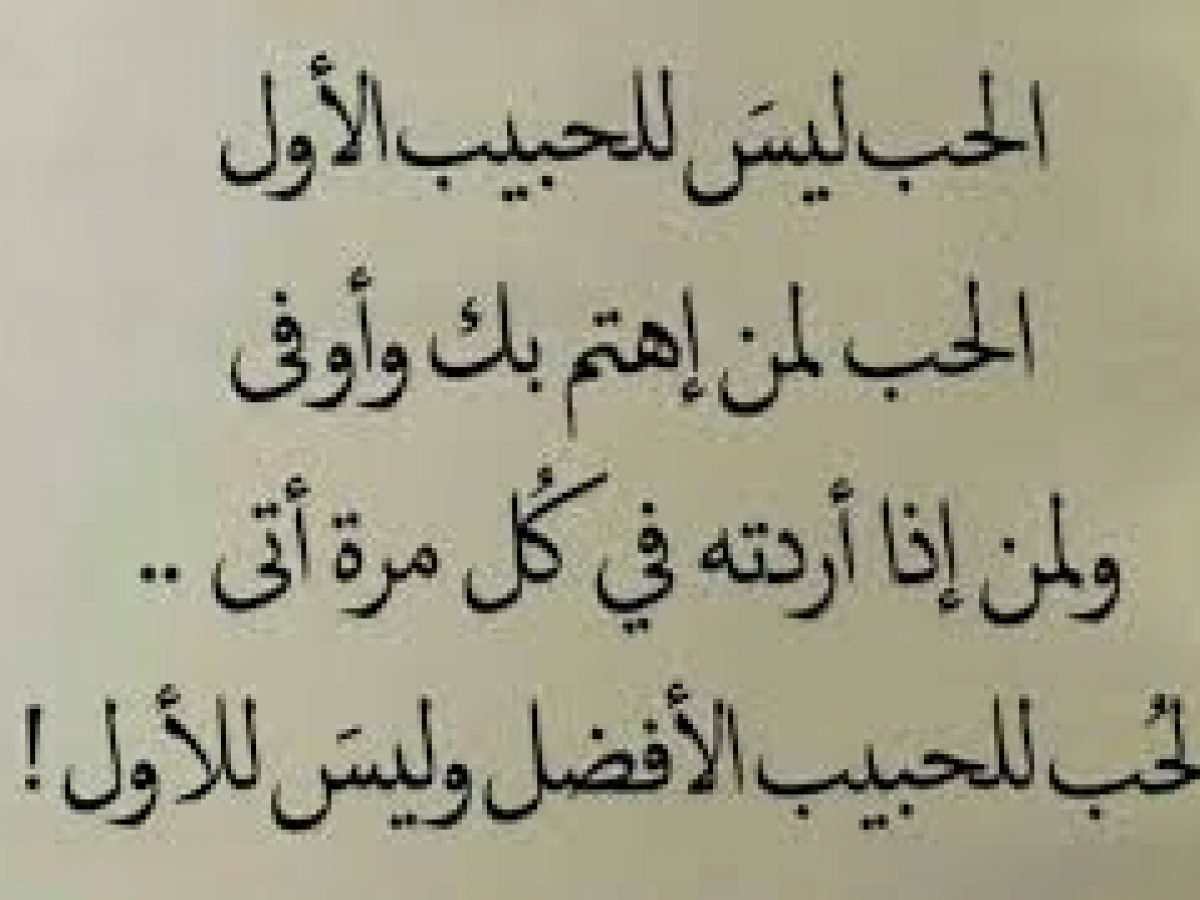 الحب ليسَ للحبيب الأول
الحب لمن إهتم بك وأوفى
ولمن إذا أردته في كُل مرة أتى ..
لحُب للحبيب الأفضل وليسَ للأول !